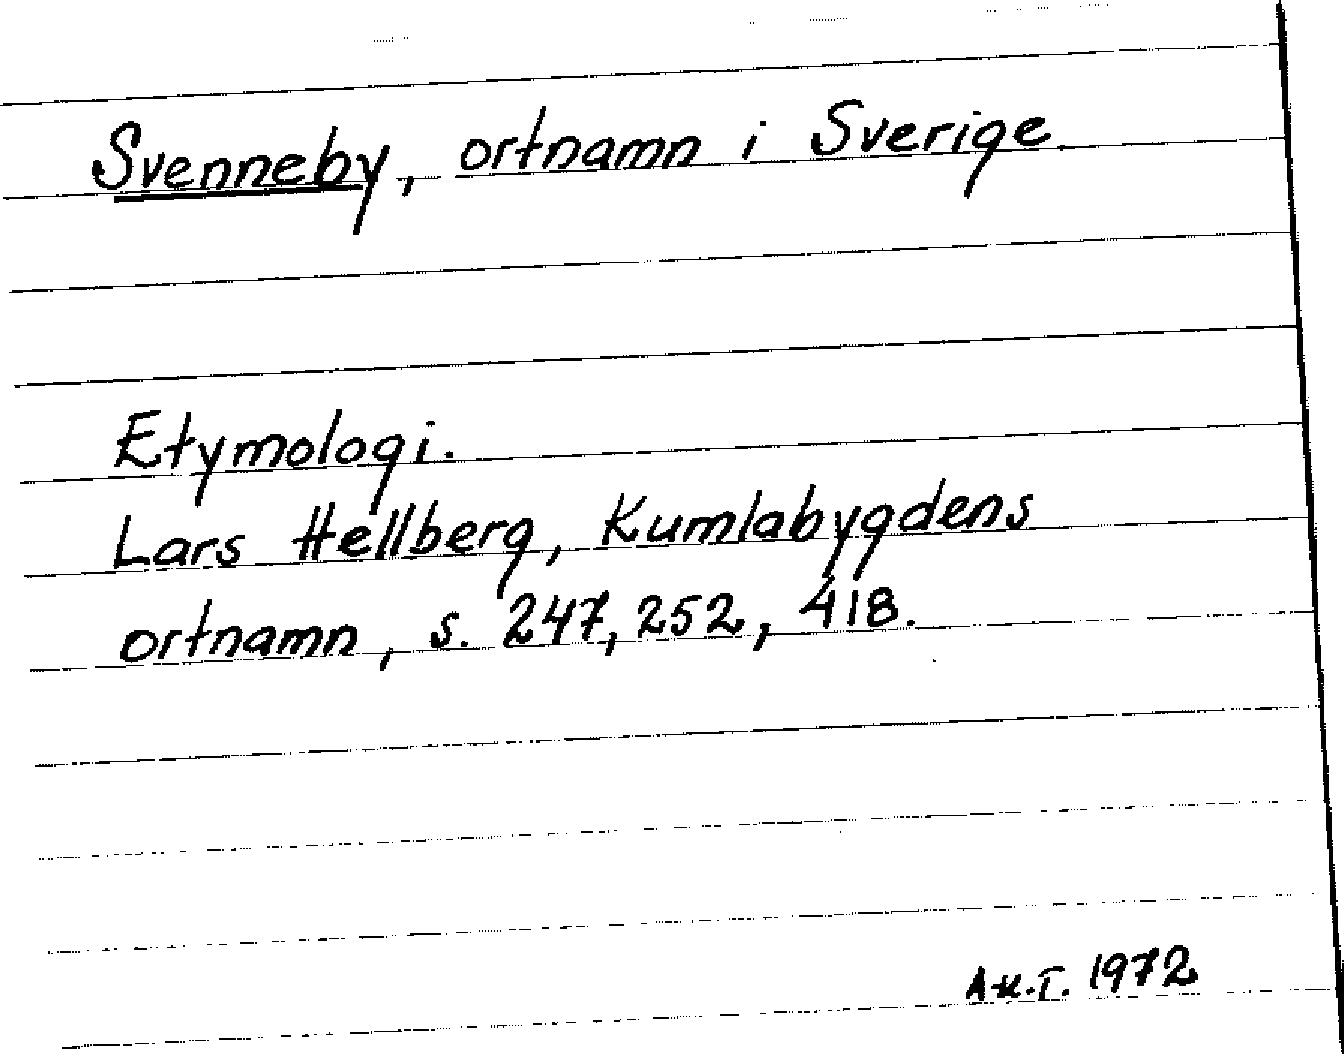 Svenneby, ortnamn i Sverige
Etymologi.
Lars Hellberg, Kumlabygdens
ortnamn, s. 247, 252, 418.
A-K.T. 1972